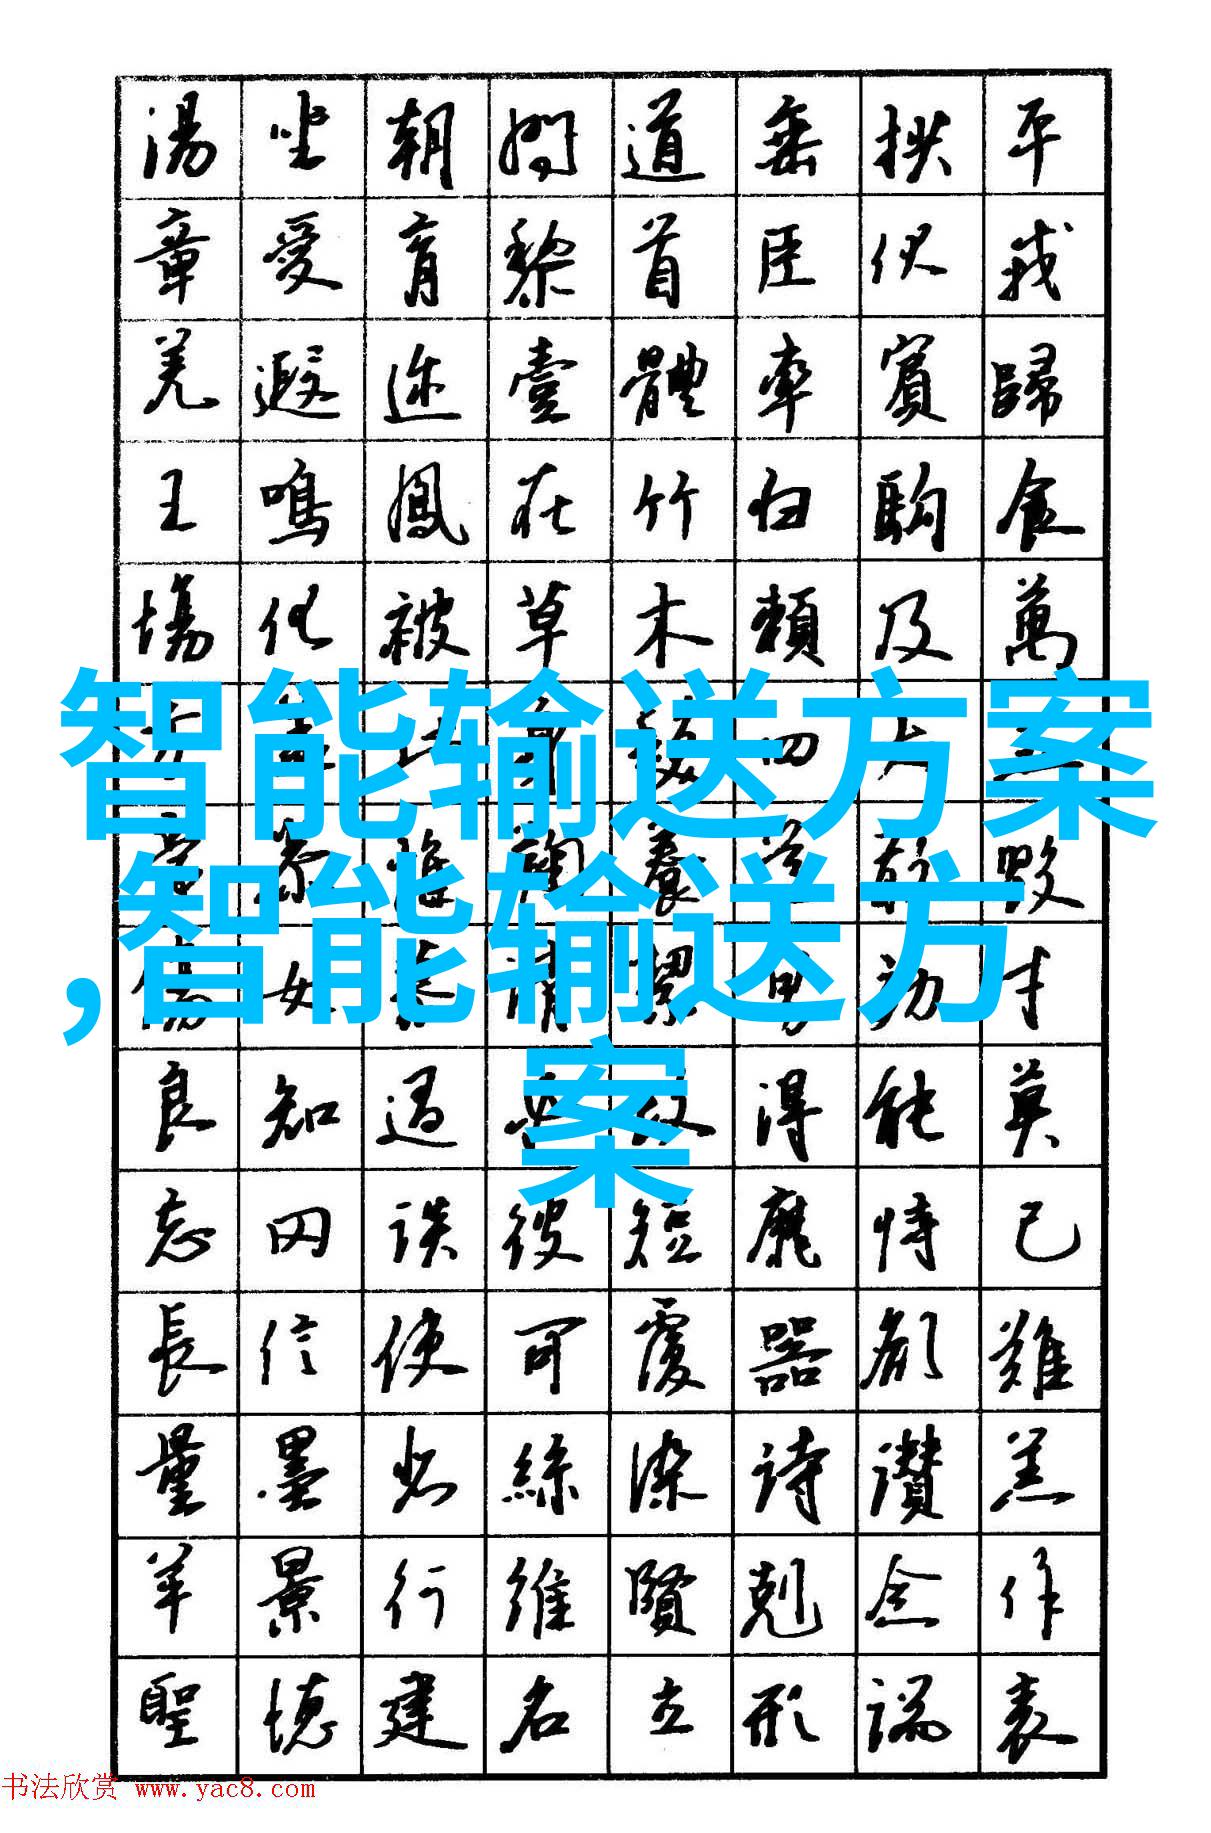 湯坐朝問道垂拱平
章愛育黎首臣伏戎
羌遐迩壹體率賓歸
王鳴鳳在竹白駒食
場化被草木賴及萬
四大
養
良知過必改得能莫
忘罔談彼短靡恃己
長信使可覆器欲難
量墨悲絲染詩讃羔
羊景行維賢剋念作
聖德建名立形端表
智能输送方案
,智能输送方
案
书法欣赏 www.yac8.com